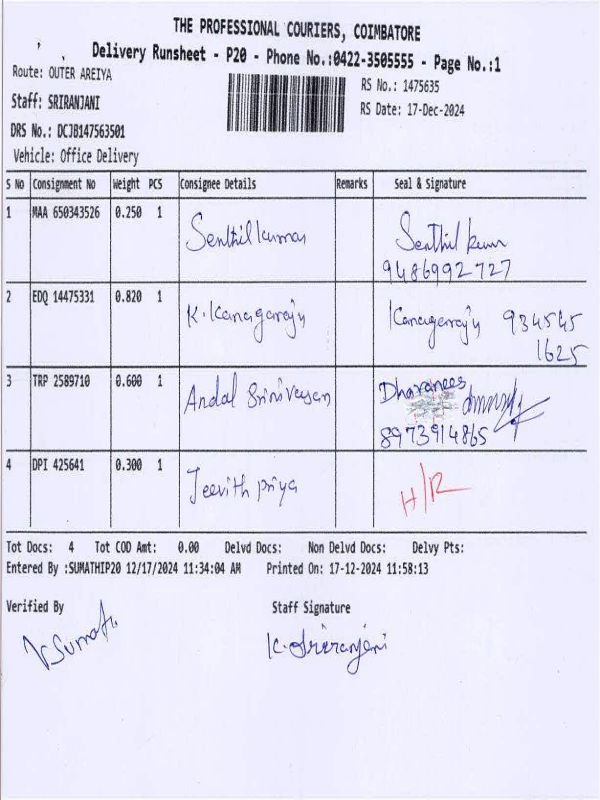 THE PROFESSIONAL COURIERS, COIMBATORE
Delivery Runsheet - P20 - Phone No.:0422-3505555 - Page No.:1
Route: OUTER AREIYA
RS No.: 1475635
Staff: SRIRANJANI
RS Date: 17-Dec-2024
DRS No.: DCJB147563501
Vehicle: Office Delivery
S No Consignment No Weight PCS Consignee Details Remarks Seal & Signature
1 MAA 650343526 0.250 1 Senthil kumar Senthil kum
9486992727
2 EDQ 14475331 0.820 1 K. Kanagaraju Kanagaraju 934545
1625
3 TRP 2589710 0.600 1 Andal Srinivasan Dharanees
8973914865
4 DPI 425641 0.300 1 Jeevith priya H/R
Tot Docs: 4 Tot COD Amt: 0.00 Delvd Docs: Non Delvd Docs: Delvy Pts:
Entered By :SUMATHIP20 12/17/2024 11:34:04 AM Printed On: 17-12-2024 11:58:13
Verified By Staff Signature
V. Sumathi K. Sriranjani